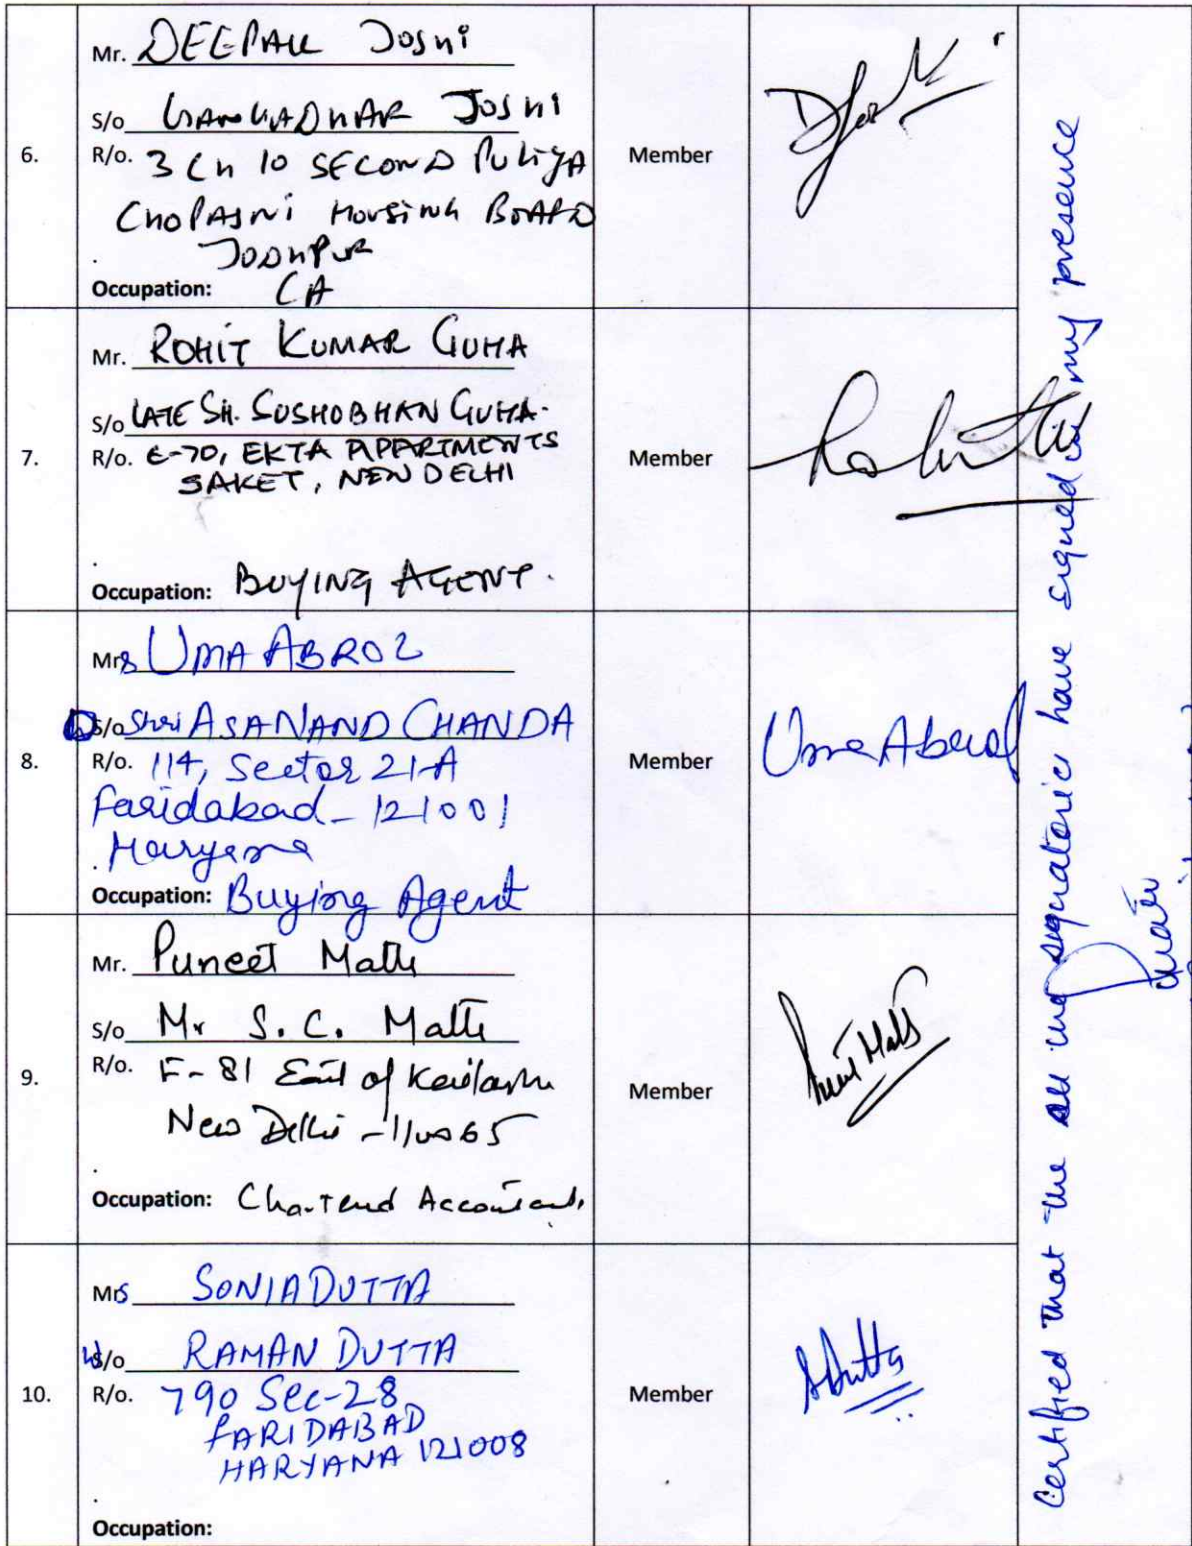 6.
Mr. DEEPAK JOSHI
S/o GANGADHAR JOSHI
R/o. 3 CH 10 SECOND PULIYA
CHOPASNI HOUSING BOARD
JODHPUR
Occupation: CA
Member
7.
Mr. ROHIT KUMAR GUHA
S/o LATE SH. SUSHOBHAN GUHA.
R/o. E-70, EKTA APPARTMENTS
SAKET, NEW DELHI
Occupation: BUYING AGENT.
Member
8.
Mrs UMA ABROL
D/o Shri ASANAND CHANDA
R/o. 114, Sector 21-A
Faridabad - 121001
Haryana
Occupation: Buying Agent
Member
Uma Abrol
9.
Mr. Puneet
S/o Mr S. C.
R/o. F-81 East of Kailash
New Delhi - 110065
Occupation: Chartered Accountant.
Member
10.
Mrs SONIA DUTTA
W/o RAMAN DUTTA
R/o. 790 Sec-28
FARIDABAD
HARYANA 121008
Occupation:
Member
SDutta
Certified that the all the signatories have signed in my presence